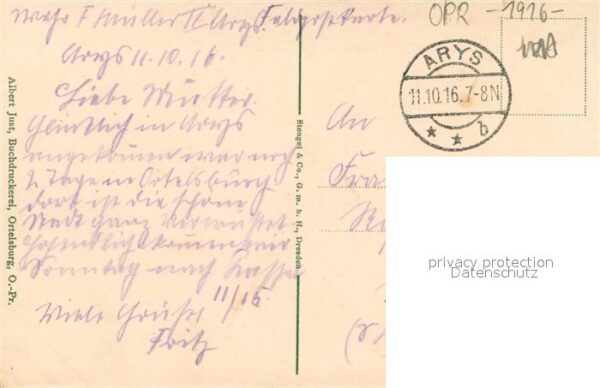 Wehr F Müller II Arys. Feldpostkarte.
OPR - 1916 -
Arys 11.10.16.
Liebe Mutter.
Glücklich in Arys
angekommen war noch
2 Tage in Ortelsburg
dort ist die schöne
Stadt ganz verwüstet
hoffendlich kommen wir
Sonntag nach
11/16
Viele Grüße
Fritz
Albert Just, Buchdruckerei, Ortelsburg, O.-Pr.
Stengel & Co., G. m. b. H., Dresden
ARYS
11.10.16.7-8N
* * b
An
Fra
privacy protection
Datenschutz